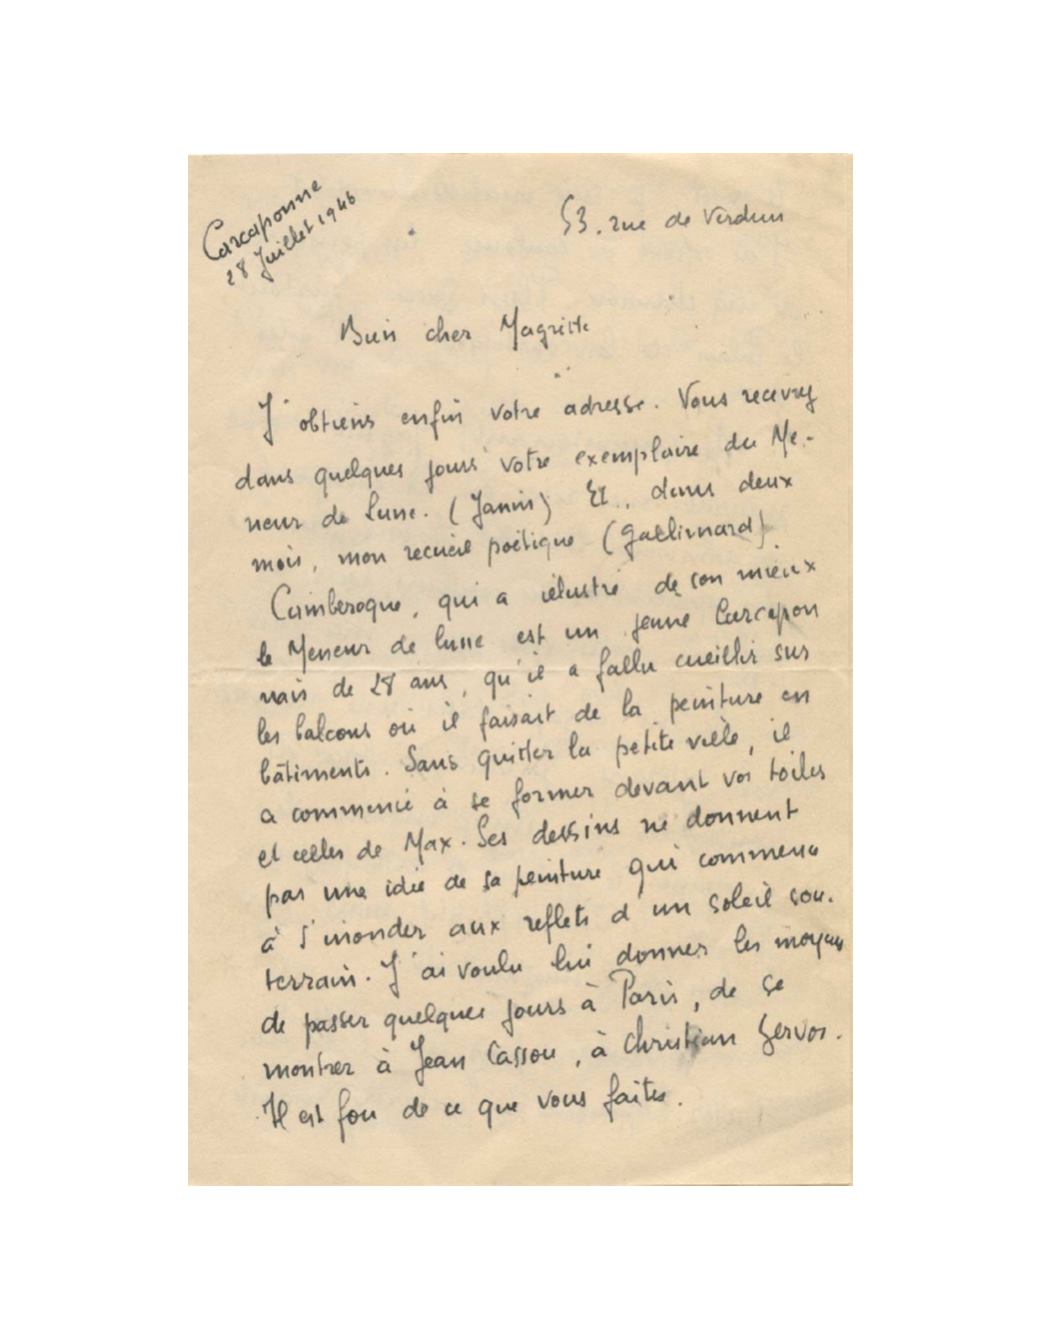 Carcassonne
28 Juillet 1946
53, rue de Verdun
Bien cher Magritte
J'obtiens enfin votre adresse. Vous recevrez
dans quelques jours votre exemplaire du Me-
neur de Lune. (Janin) Et.. dans deux
mois, mon recueil poétique (Gallimard)
Camberoque, qui a illustré de son mieux
le Meneur de lune est un jeune Carcasson
nais de 28 ans, qu'il a fallu cueillir sur
les balcons où il faisait de la peinture en
bâtiments. Sans quitter la petite ville, il
a commencé à se former devant vos toiles
et celles de Max. Ses dessins ne donnent
pas une idée de sa peinture qui commence
à s'inonder aux reflets d'un soleil sou-
terrain. J'ai voulu lui donner les moyens
de passer quelques jours à Paris, de se
montrer à Jean Cassou, à Christian Zervos.
Il est fou de ce que vous faites.